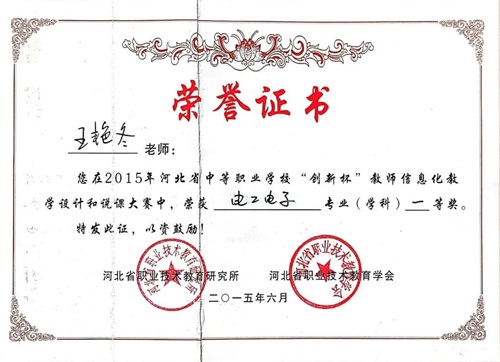 荣誉证书
王艳冬 老师：
您在2015年河北省中等职业学校“创新杯”教师信息化教
学设计和说课大赛中，荣获 电工电子 专业（学科）一等奖。
特发此证，以资鼓励！
河北省职业技术教育研究所 河北省职业技术教育学会
二〇一五年六月